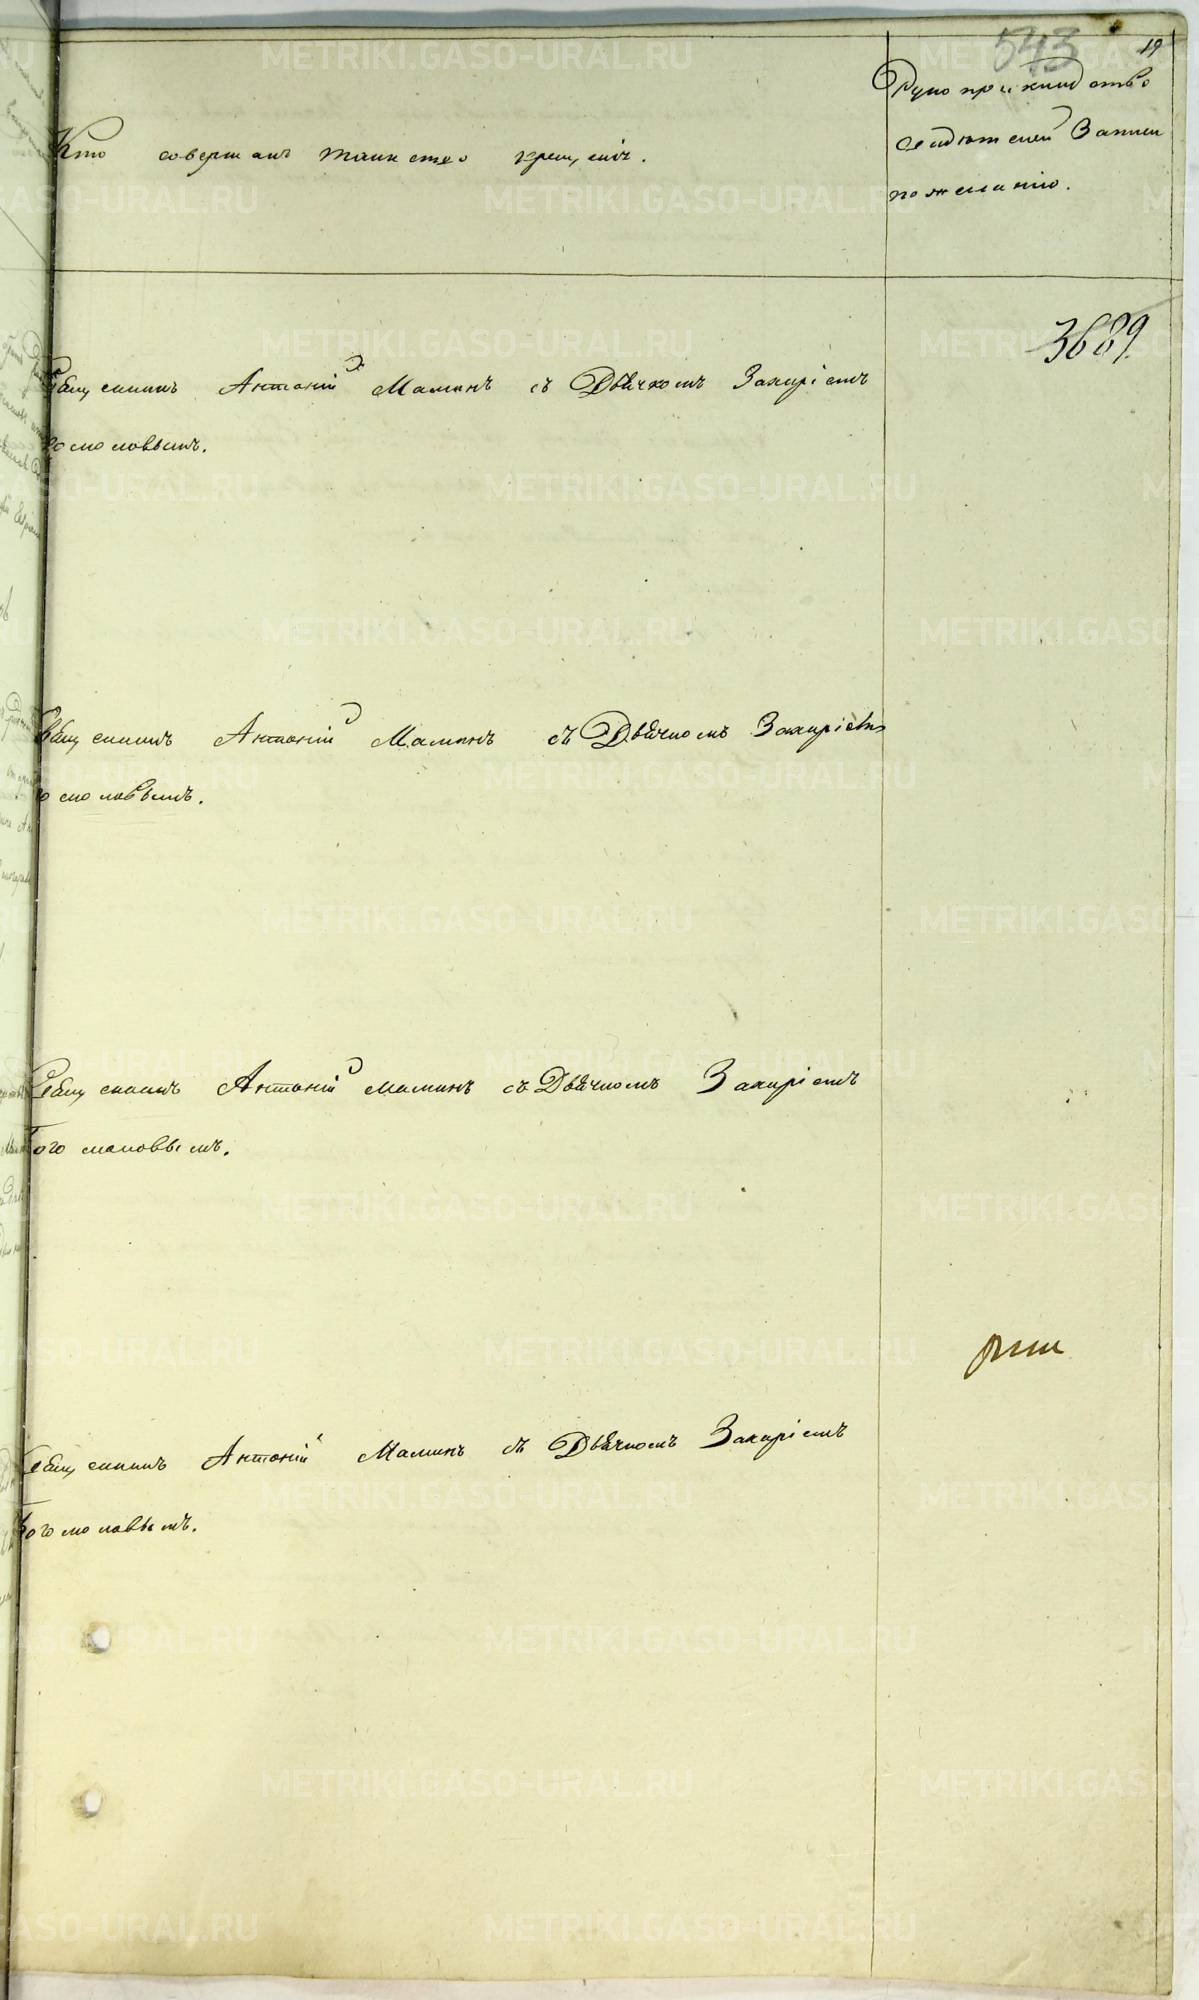 543
19
Кто совершалъ таинство крещенія.
Рукоприкладство
свидѣтелей Записи
по желанію.
3689.
Священникъ Антоній Маминъ съ Дьячкомъ Захаріемъ
Богомоловымъ.
Священникъ Антоній Маминъ съ Дьячкомъ Захаріемъ
Богомоловымъ.
Священникъ Антоній Маминъ съ Дьячкомъ Захаріемъ
Богомоловымъ.
Священникъ Антоній Маминъ съ Дьячкомъ Захаріемъ
Богомоловымъ.
METRIKI.GASO-URAL.RU